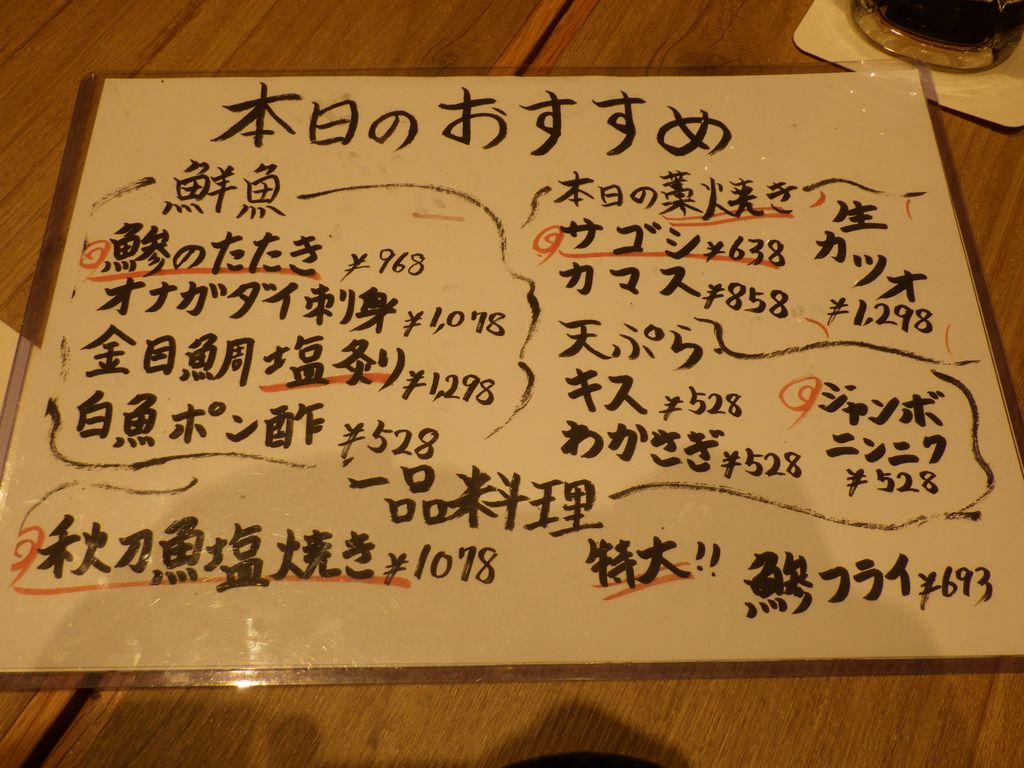 本日のおすすめ
鮮魚
鯵のたたき ¥968
オナガダイ刺身 ¥1,078
金目鯛塩炙り ¥1,298
白魚ポン酢 ¥528
本日の藁焼き
サゴシ ¥638
カマス ¥858
生
カツオ
¥1,298
天ぷら
キス ¥528
わかさぎ ¥528
ジャンボ
ニンニク
¥528
一品料理
秋刀魚塩焼き ¥1078
特大!! 鯵フライ ¥693